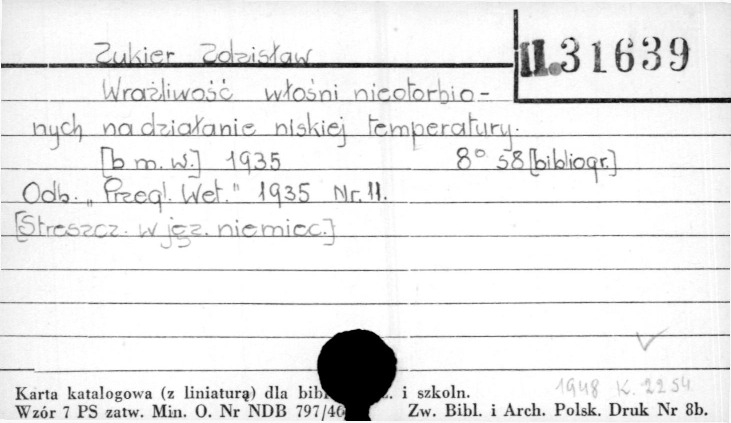 Zukier Zdzisław
II.31639
Wrażliwość włośni nieotorbio-
nych na działanie niskiej temperatury.
[b m. w.] 1935 8° s8 [bibliogr.]
Odb. „Przegl. Wet." 1935 Nr. 11.
[Streszcz. w jęz. niemiec.]
1948 K. 2254
Karta katalogowa (z liniaturą) dla i szkoln.
Wzór 7 PS zatw. Min. O. Nr NDB Zw. Bibl. i Arch. Polsk. Druk Nr 8b.